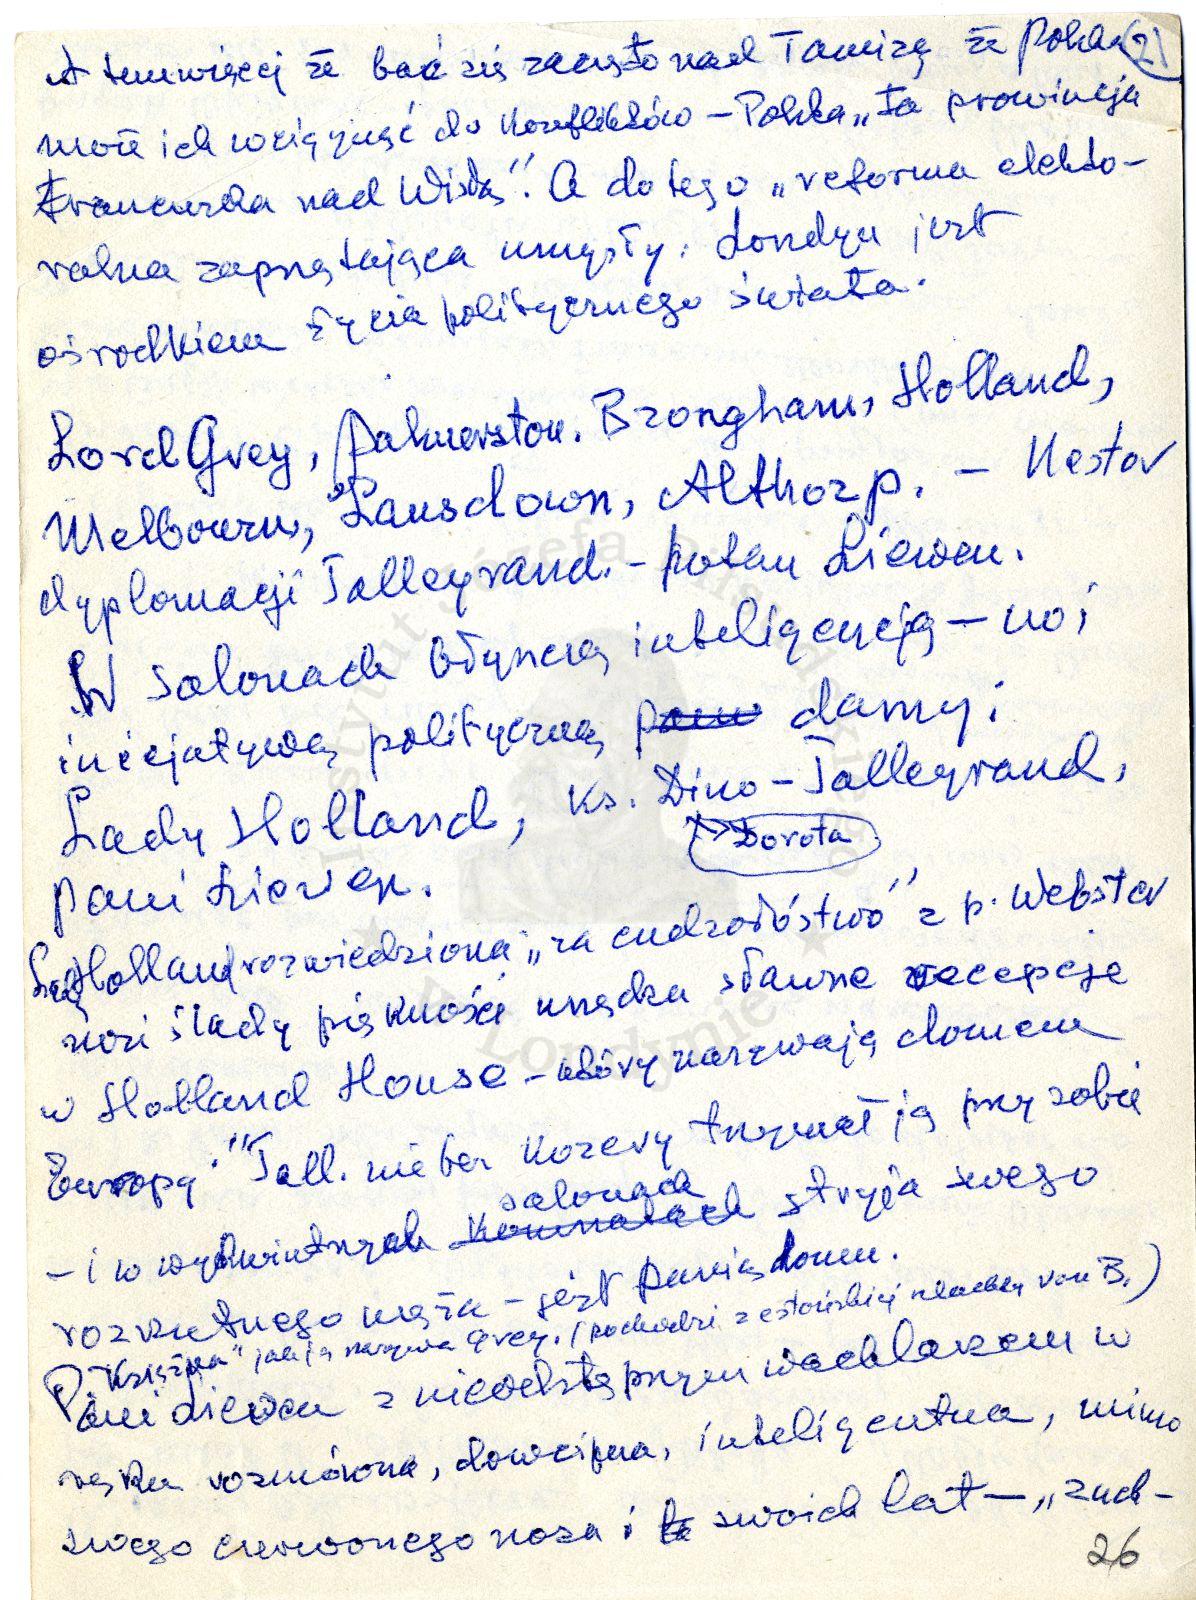 A temwięcej że bać się zaczęto nad Tamizą że Polska (2)
może ich wciągnąć do konfliktów – Polska „ta prowincja
francuska nad Wisłą". A do tego „reforma elekto-
ralna zaprzątająca umysły. Londyn jest
ośrodkiem życia politycznego świata.
Lord Grey, Palmerston. Brongham, Holland,
Melbourn, Lansdown, Althorp. – Nestor
dyplomacji Talleyrand. – potem Lieven.
W salonach błyszczą inteligencją – no i
inicjatywą polityczną damy:
Lady Holland, ks. Dino – Talleyrand,
Dorota
Pani Lieven.
Lady Holland rozwiedziona „za cudzołóstwo" z p. Webster
nosi ślady piękności urządza sławne recepcje
w Holland House – który nazywają domem
Europy." Tall. nie bez kozery trzymał ją przy sobie
salonach
– i w wykwintnych komnatach stryja swego
rozrzutnego męża – jest panią domu.
"Księżna" jak ją nazywa Grey. (pochodzi z estońskiej szlachty von B.)
Pani Lieven z nieodstępnym wachlarzem w
ręku rozmówna, dowcipna, inteligentna, mimo
swego czerwonego nosa i swoich lat – „zuch-
26
Instytut Józefa Piłsudskiego
w Londynie